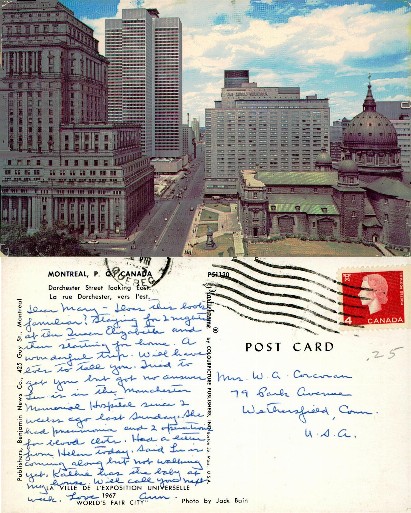 MONTREAL, P. Q. CANADA
Dorchester Street looking East.
La rue Dorchester, vers l'est.
PSI130
QUEBEC
4
CANADA
POST CARD
.25
Dear Mary - Does this look
familiar? Staying for 2 nights
at the Queen Elizabeth and
then starting for home. A
wonderful trip. Will have
lots to tell you. Tried to
get you but got no answer.
Lu is in the Manchester
Memorial Hospital since 2
weeks ago last Sunday. She
had pneumonia and 2 operations
for blood clots. Had a letter
from Helen today. Said Lu is
coming along but not walking
yet. Kathie has the baby at
my house. Will call you next
week. Love Ann.
Mrs. W. A. Corcoran
79 Park Avenue
Wethersfield, Conn.
U.S.A.
Publishers, Benjamin News Co., 425 Guy St., Montreal
LA VILLE DE L'EXPOSITION UNIVERSELLE
1967
WORLD'S FAIR CITY
Photo by Jack Bain